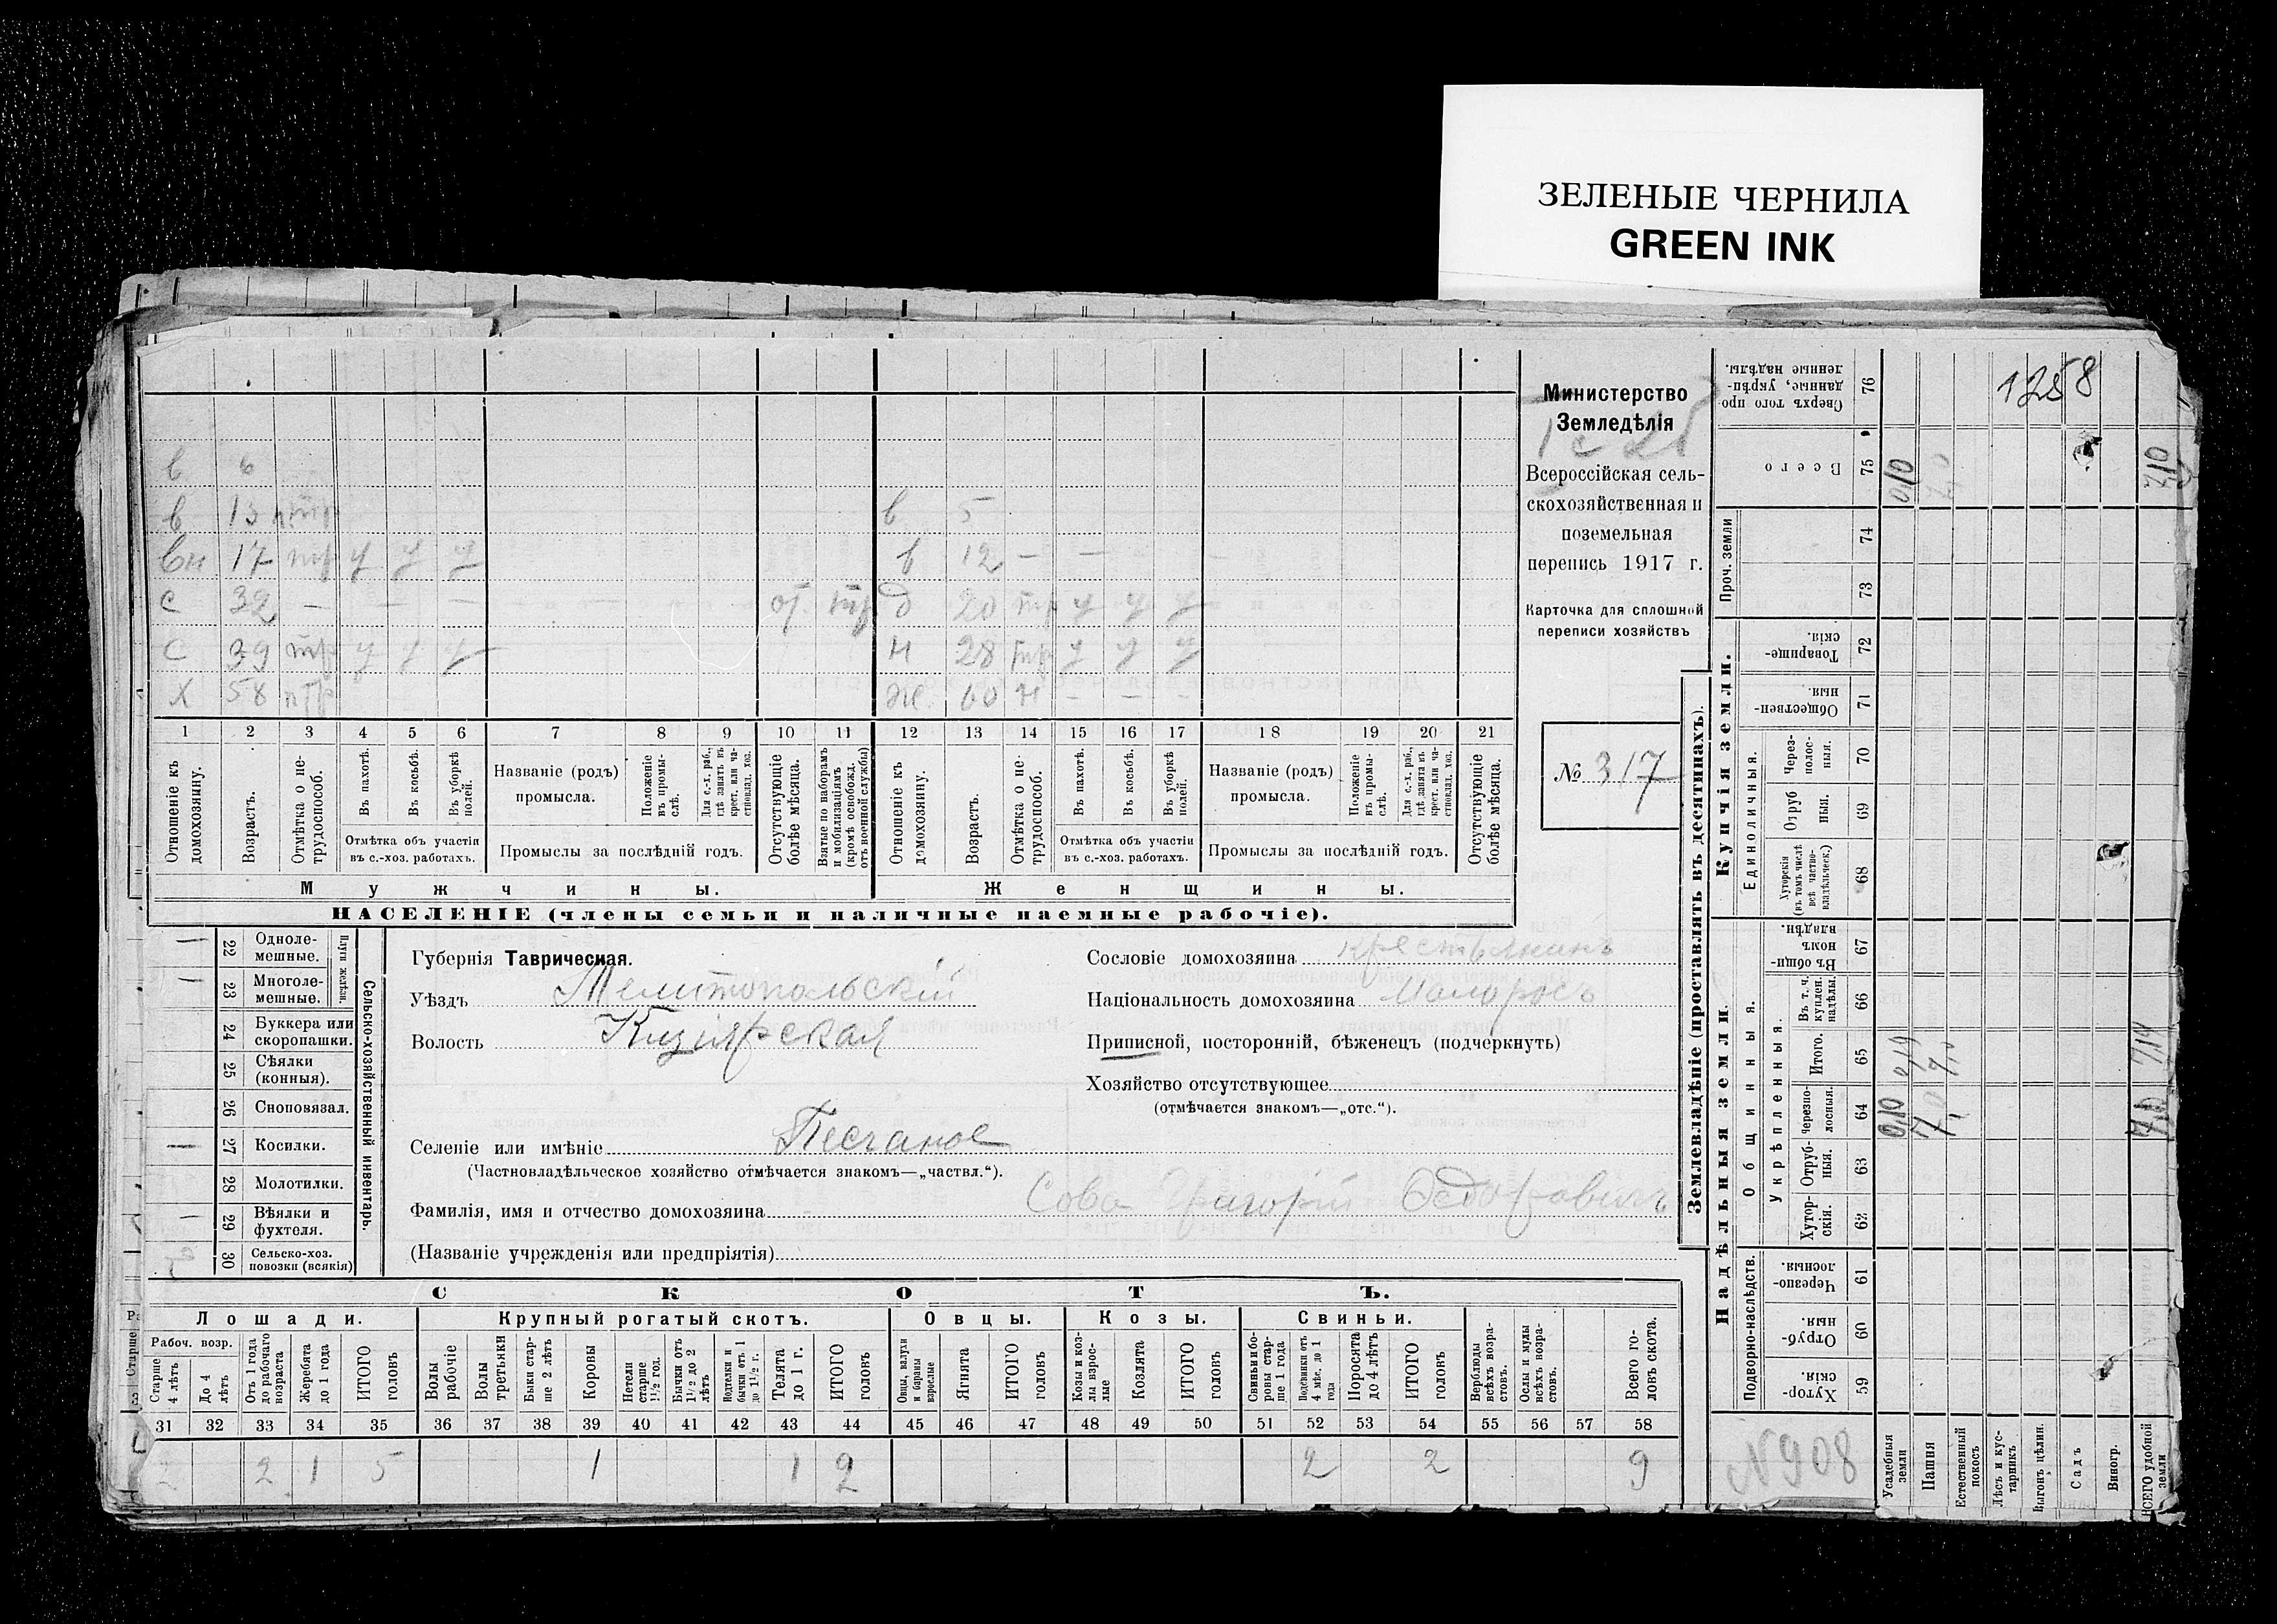 ЗЕЛЕНЫЕ ЧЕРНИЛА
GREEN INK
Министерство
Земледѣлія
Всероссійская сель-
скохозяйственная и
поземельная
перепись 1917 г.
Карточка для сплошной
переписи хозяйствъ
№ 317
в 6
в 13 птр в 5
вн 17 тр у у у в 12 — —
с 32 — — — от. тр д 20 тр у у у
с 39 тр у у у н 28 тр у у у
х 58 птр ж. 60 н - - -
1 2 3 4 5 6 7 8 9 10 11 12 13 14 15 16 17 18 19 20 21
Отношеніе къ домохозяину.
Возрастъ.
Отмѣтка о не-трудоспособ.
Въ пахотѣ.
Въ косьбѣ.
Въ уборкѣ полей.
Отмѣтка объ участіи въ с.-хоз. работахъ.
Названіе (родъ) промысла.
Положеніе въ промы-слѣ.
Для с.-х. раб., гдѣ заняты въ крест. или ча-стновлад. хоз.
Промыслы за послѣдній годъ.
Отсутствующіе болѣе мѣсяца.
Взятые по наборамъ и мобилизаціямъ (кромѣ освобожд. отъ военной службы)
Отношеніе къ домохозяину.
Возрастъ.
Отмѣтка о не-трудоспособ.
Въ пахотѣ.
Въ косьбѣ.
Въ уборкѣ полей.
Отмѣтка объ участіи въ с.-хоз. работахъ.
Названіе (родъ) промысла.
Положеніе въ промы-слѣ.
Для с.-х. раб., гдѣ занята въ крест. или ча-стновлад. хоз.
Промыслы за послѣдній годъ.
Отсутствующіе болѣе мѣсяца.
Мужчины. Женщины.
НАСЕЛЕНІЕ (члены семьи и наличные наемные рабочіе).
22 Одноле-мешные.
23 Многоле-мешные.
Плуги желѣзн.
24 Буккера или скоропашки.
25 Сѣялки (конныя).
26 Сноповязал.
27 Косилки.
28 Молотилки.
29 Вѣялки и фухтеля.
30 Сельско-хоз. повозки (всякія)
Сельско-хозяйственный инвентарь.
Губернія Таврическая.
Уѣздъ Мелитопольскій
Волость Кизіярская
Селеніе или имѣніе Песчаное
(Частновладѣльческое хозяйство отмѣчается знакомъ—„частвл.“).
Фамилія, имя и отчество домохозяина Сова Григорій Федоровичъ
(Названіе учрежденія или предпріятія)
Сословіе домохозяина крестьянинъ
Національность домохозяина Малоросъ
Приписной, посторонній, бѣженецъ (подчеркнуть)
Хозяйство отсутствующее
(отмѣчается знакомъ—„отс.“).
СКОТЪ.
Лошади. Крупный рогатый скотъ. Овцы. Козы. Свиньи.
Рабоч. возр.
Старше 4 лѣтъ
До 4 лѣтъ
Отъ 1 года до рабочаго возраста
Жеребята до 1 года
ИТОГО головъ
Волы рабочіе
Волы третьяки
Быки стар-ше 2 лѣтъ
Коровы
Нетели старше 1 1/2 год.
Бычки отъ 1 1/2 до 2 лѣтъ
Подтелки и бычки отъ 1 до 1 1/2 г.
Телята до 1 г.
ИТОГО головъ
Овцы, валухи и бараны взрослые
Ягнята
ИТОГО головъ
Козы и коз-лы взрос-лые
Козлята
ИТОГО головъ
Свиньи и бо-ровы стар-ше 1 года
Подсвинки отъ 4 мѣс. до 1 года
Поросята до 4 лѣтъ
ИТОГО головъ
Верблюды всѣхъ возра-стовъ.
Ослы и мулы всѣхъ возра-стовъ.
Всего го-ловъ скота.
31 32 33 34 35 36 37 38 39 40 41 42 43 44 45 46 47 48 49 50 51 52 53 54 55 56 57 58
2 2 1 5 1 1 2 2 2 9
Землевладѣніе (проставлять въ десятинахъ).
Надѣльныя земли. Купчія земли.
Подворно-наслѣдств.
Общинныя.
Укрѣпленныя.
Единоличныя.
Проч. земли
Хутор-скія. 59
Отруб-ныя. 60
Черезпо-лосныя. 61
Хутор-скія. 62
Отруб-ныя. 63
Черезпо-лосныя. 64
Итого. 65
Въ т. ч. куплен. надѣлы. 66
Въ общи-номъ владѣн. 67
Хуторскія (въ томъ числѣ всѣ частно-владѣльческ.) 68
Отруб ныя. 69
Через-полос-ныя. 70
Обществен-ныя. 71
Товарище-скія. 72
73
74
Всего 75
Сверхъ того про-данные, укрѣп-ленные надѣлы. 76
Усадебныя земли
Пашня
Естественный покосъ
Лѣсъ и кус-тарникъ
Выгонъ, цѣлин.
Садъ
Виногр.
ВСЕГО удобной земли
1258
0,10
7,10
0,10
7,0
7,10
N908